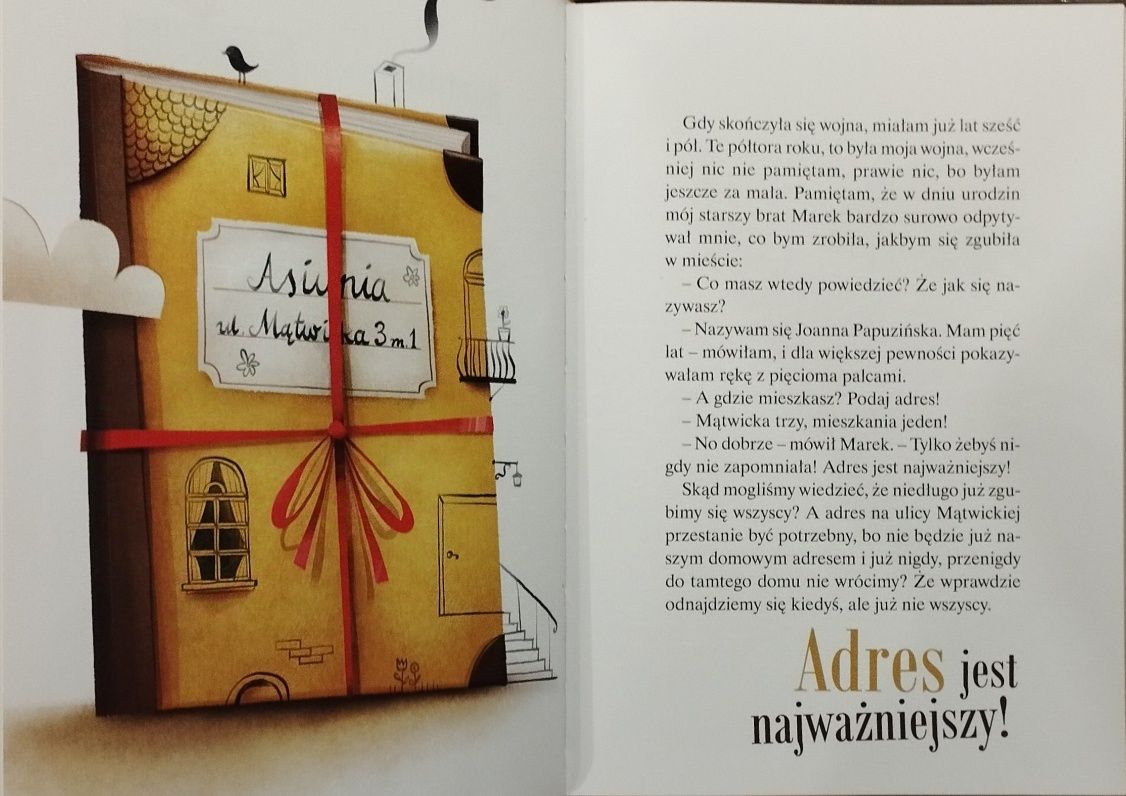 Asiunia
ul. Mątwicka 3 m. 1
Gdy skończyła się wojna, miałam już lat sześć
i pół. Te półtora roku, to była moja wojna, wcześ-
niej nic nie pamiętam, prawie nic, bo byłam
jeszcze za mała. Pamiętam, że w dniu urodzin
mój starszy brat Marek bardzo surowo odpyty-
wał mnie, co bym zrobiła, jakbym się zgubiła
w mieście:
– Co masz wtedy powiedzieć? Że jak się na-
zywasz?
– Nazywam się Joanna Papuzińska. Mam pięć
lat – mówiłam, i dla większej pewności pokazy-
wałam rękę z pięcioma palcami.
– A gdzie mieszkasz? Podaj adres!
– Mątwicka trzy, mieszkania jeden!
– No dobrze – mówił Marek. – Tylko żebyś ni-
gdy nie zapomniała! Adres jest najważniejszy!
Skąd mogliśmy wiedzieć, że niedługo już zgu-
bimy się wszyscy? A adres na ulicy Mątwickiej
przestanie być potrzebny, bo nie będzie już na-
szym domowym adresem i już nigdy, przenigdy
do tamtego domu nie wrócimy? Że wprawdzie
odnajdziemy się kiedyś, ale już nie wszyscy.
Adres jest
najważniejszy!